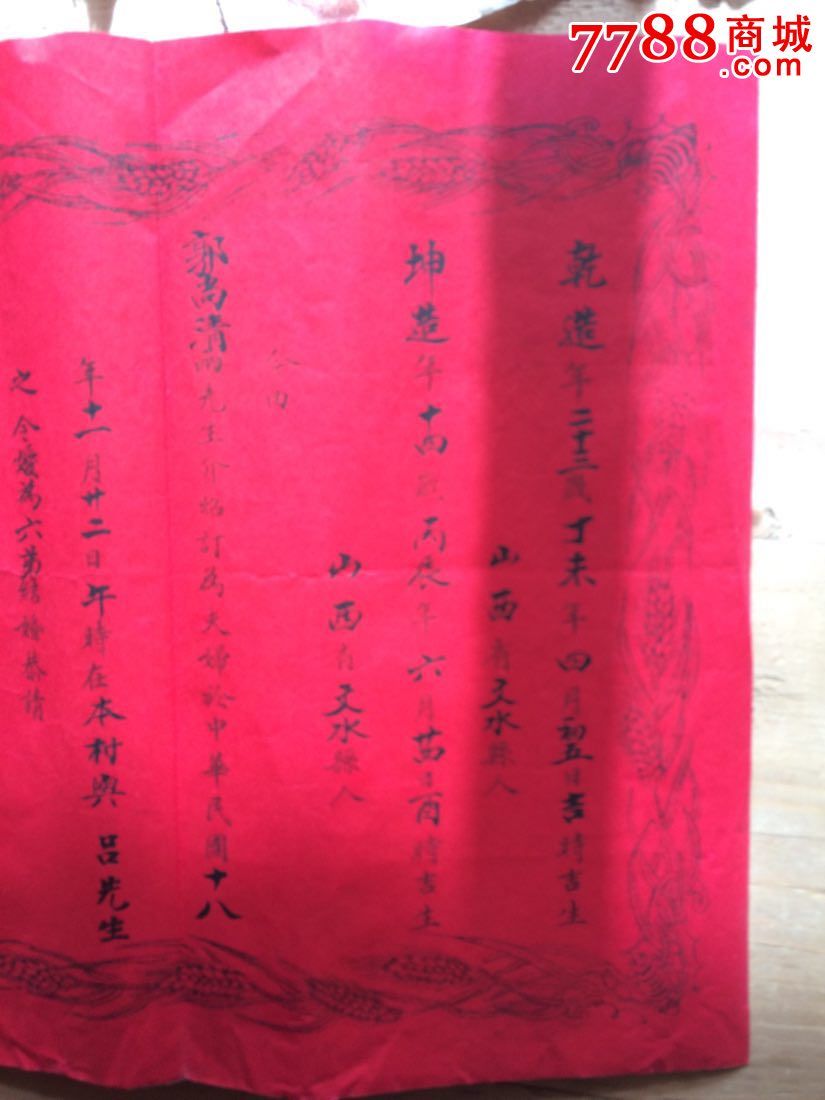 7788商城
.com
乾造年二十三歲丁未年四月初五日吉時吉生
山西省文水縣人
坤造年十四歲丙辰年六月廿日酉時吉生
山西省文水縣人
今由
郭尚清先生介紹訂為夫婦於中華民國十八
年十一月廿二日午時在本村與呂先生
之令嬡為六弟結婚恭請